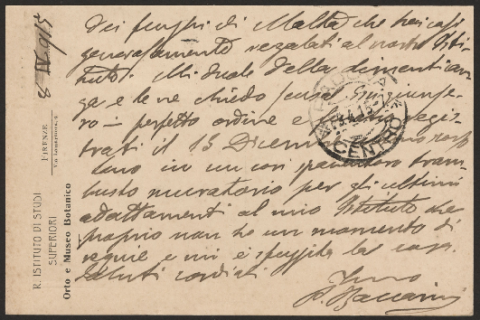 Dei funghi di Malta che hai così
generosamente regalati al nostro Isti-
tuto! Mi duole della dimentican-
za e te ne chiedo scusa. Giunsero
ro - perfetto ordine e
trati il 13 Dicem
tano in un così pauroso tram-
busto muratorio per gli ultimi
adattamenti al mio Istituto che
proprio non ho un momento di
requie e mi è sfuggita la cosa.
Saluti cordiali
Tuo
P. Baccarini
8 IV 915
R. ISTITUTO DI STUDI
SUPERIORI
Orto e Museo Botanico
FIRENZE
CENTRO